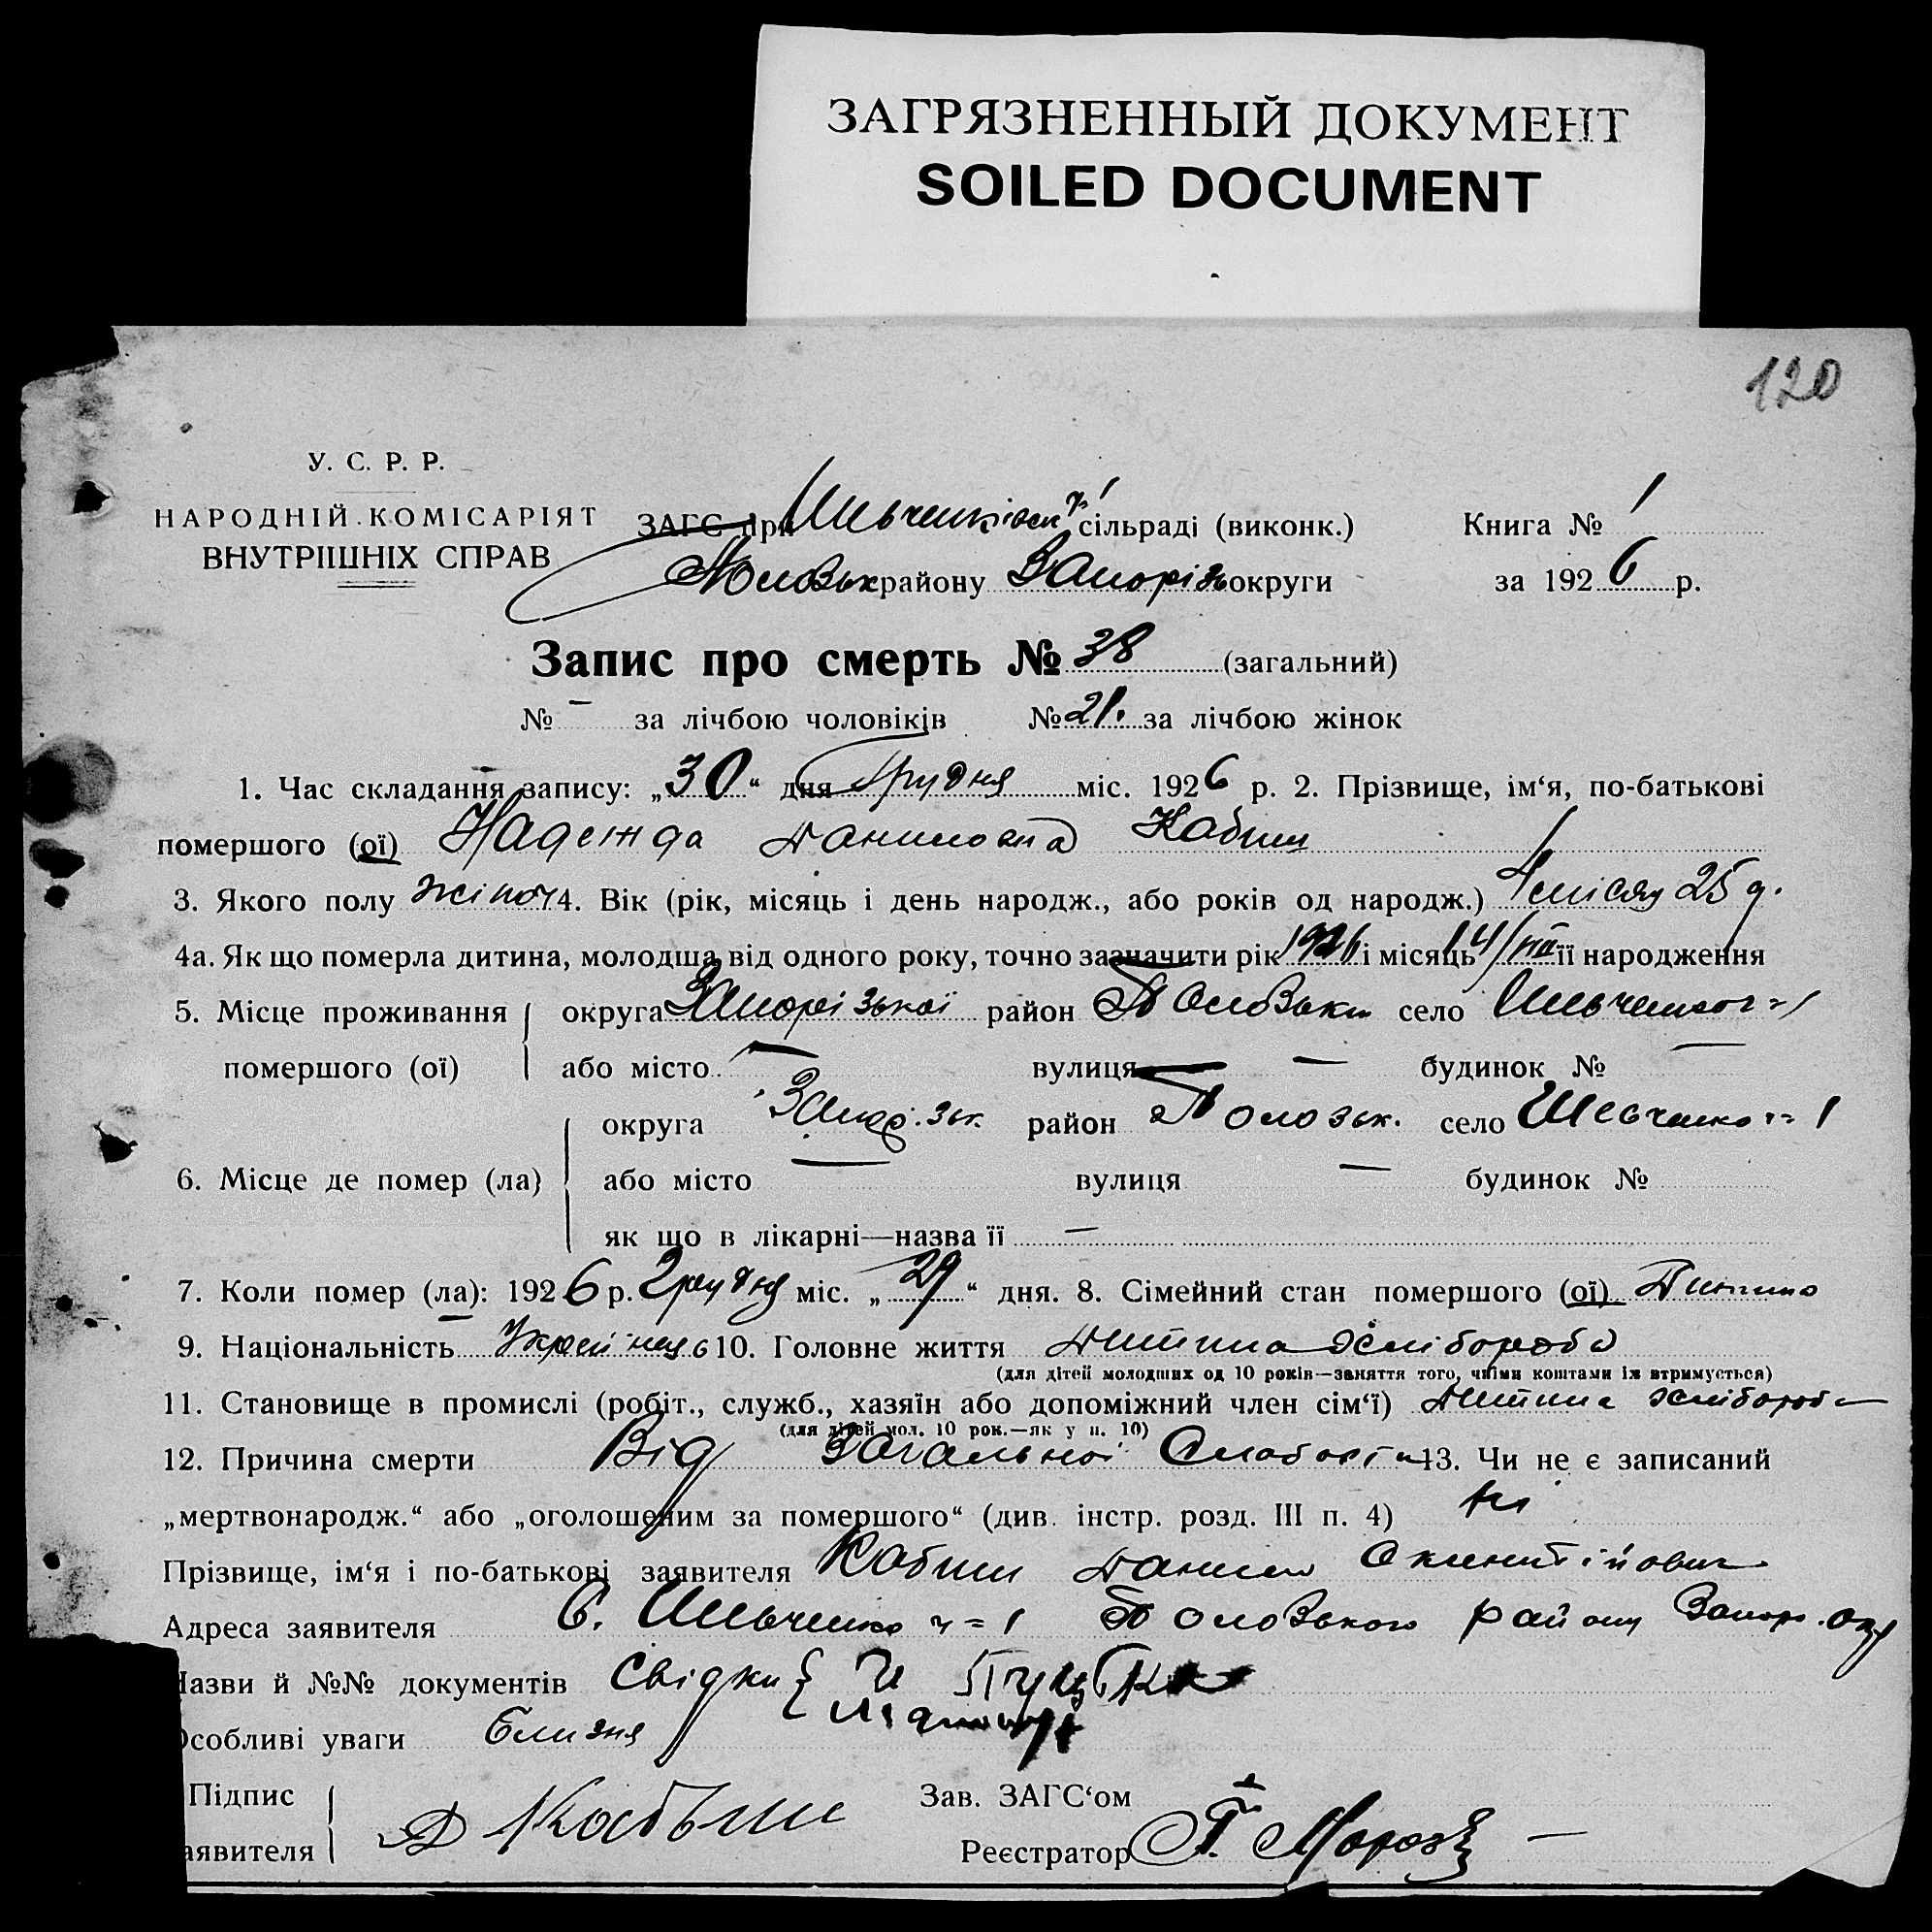 ЗАГРЯЗНЕННЫЙ ДОКУМЕНТ
SOILED DOCUMENT
120
У. С. Р. Р.
НАРОДНІЙ КОМІСАРІЯТ
ВНУТРІШНІХ СПРАВ
ЗАГС при Шевченківськ. сільраді (виконк.) Книга № 1
Пологівськ району Запорізь округи за 1926 р.
Запис про смерть № 38 (загальний)
№ – за лічбою чоловіків № 21. за лічбою жінок
1. Час складання запису: „30“ дня Грудня міс. 1926 р. 2. Прізвище, ім‘я, по-батькові
помершого (ої) Надежда Даниловна Кабиш
3. Якого полу жіноч 4. Вік (рік, місяць і день народж., або років од народж.) 4 місяц 25 д.
4а. Як що померла дитина, молодша від одного року, точно зазначити рік 1926 і місяць її народження
5. Місце проживання округа Запорізької район село Шевченко
помершого (ої) або місто — вулиця — будинок № —
округа район село Шевченко 1
6. Місце де помер (ла) або місто — вулиця — будинок №
як що в лікарні—назва її —
7. Коли помер (ла): 1926 р. Грудня міс. „29“ дня. 8. Сімейний стан помершого (ої) Дитина
9. Національність 10. Головне життя Дитина хлібороба
(для дітей молодших од 10 років—заняття того, чиїми коштами їх втримується)
11. Становище в промислі (робіт., служб., хазяїн або допоміжний член сім‘ї) Дитина хлібороба
(для дітей мол. 10 рок.—як у п. 10)
12. Причина смерти Від Загальної Слабости 13. Чи не є записаний
„мертвонародж.“ або „оголошеним за помершого“ (див. інстр. розд. III п. 4) ні
Прізвище, ім‘я і по-батькові заявителя Кабиш Данило
Адреса заявителя С. Шевченко ч=1 району Запор. окр
Назви й №№ документів Свідки
Особливі уваги Близня
Підпис
заявителя Д Кабыш
Зав. ЗАГС‘ом
Реєстратор П. Мороз